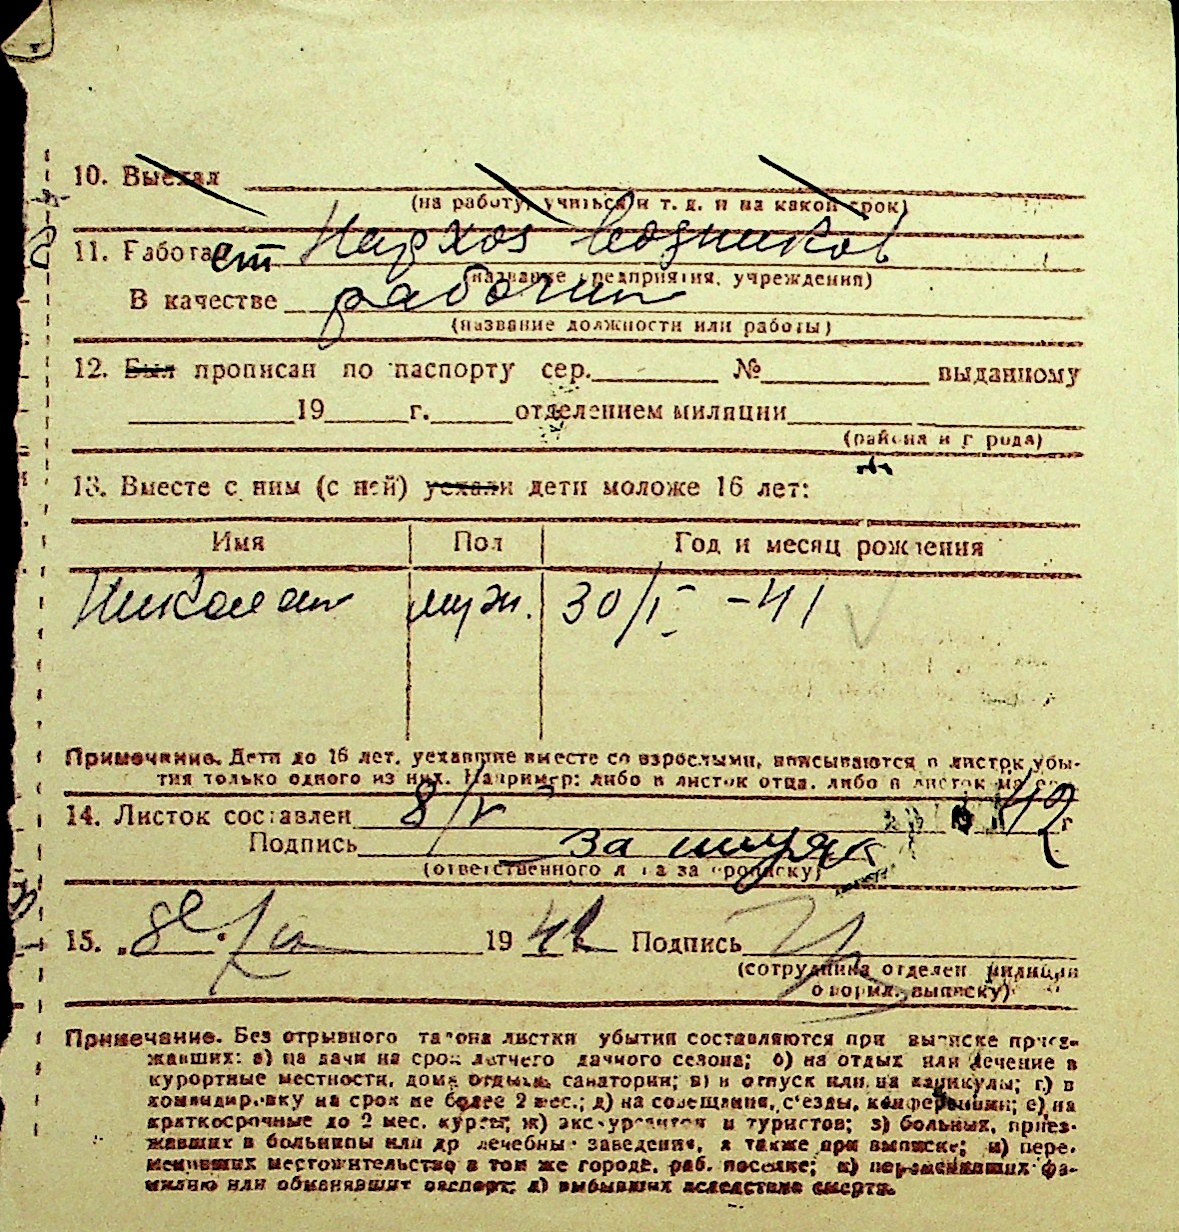 10. Выехал
(на работу, учиться и т. д. и на какой срок)
11. Работает Нархоз Водников
(название предприятия, учреждения)
В качестве рабочий
(название должности или работы)
12. Был прописан по паспорту сер. № выданному
19 г. отделением милиции
(района и города)
13. Вместе с ним (с ней) уехали дети моложе 16 лет:
Имя Пол Год и месяц рождения
Николай муж. 30/I -41
Примечание. Дети до 16 лет, уехавшие вместе со взрослыми, вписываются в листок убы-
тия только одного из них. Например: либо в листок отца, либо в листок матери.
14. Листок составлен 8/V 42 г
Подпись за
(ответственного лица за прописку)
15. „8 19 42 Подпись
(сотрудника отделен. милиции
оформл. выписку)
Примечание. Без отрывного талона листки убытия составляются при выписке приез-
жавших: а) на дачи на срок летнего дачного сезона; б) на отдых или лечение в
курортные местности, дома отдыха, санатории; в) в отпуск или на каникулы; г) в
командировку на срок не более 2 мес.; д) на совещания, с'езды, конференции; е) на
краткосрочные до 2 мес. курсы; ж) экскурсантов и туристов; з) больных, приез-
жавших в больницы или др лечебны заведения, а также при выписке; и) пере-
менивших местожительство в том же городе, раб. поселке; к) переменивших фа-
милию или обменявших паспорт; л) выбывших вследствие смерти.